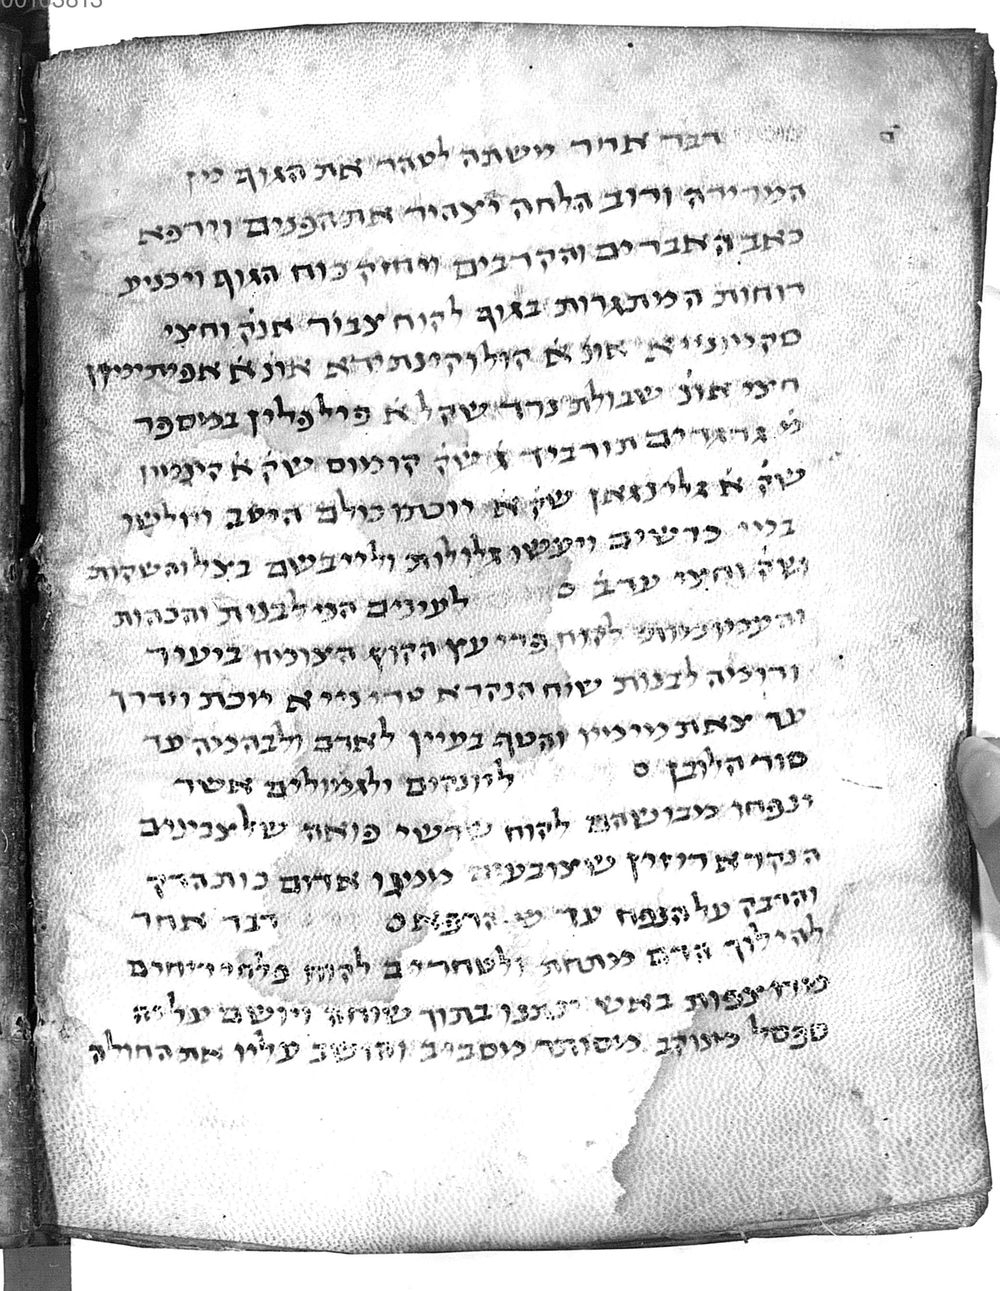 דבר אחר משתה לטהר את הגוף מין
המרירה ורוב הלחה יצהיר את הפנים וירפא
כאב האברים והקרבים ויחזק כוח הגוף ויכניע
רוחות המתגרות בגוף לקוח צבור אנק וחצי
סקמוניא אונ א קולוקינתידא אונ א אפיתימון
חיצי אונ שבולת נרד שקל א פילפלין במספר
מ גרגרים תורביד ג שק קומוס שק א קינמון
שק א גלינגאן שק א יוכתו כולם היטב וילושו
במי כרשים ויעשו גלולות ולייבשם בצל והשקות
שק וחצי ערב ס לעינים המלבנות והכהות
לקוח פרי עץ הקוץ הצומח ביעיר
ודומיה לבנות שוח הנקרא טרוניא יוכת וידרך
עד צאת מימיו והטף בעיין לאדם ולבהמה עד
סור הלובן ס ליונקים ולגמולים אשר
ינפחו מבושהם לקוח שרשי פואה שלצבעים
הנקרא רוזיץ שצובעים ממנו אדום כותה דק
והדבק על הנפח עד ש הרפא ס דבר אחר
להילוך הדם מתחת ולטחרים לקוח פלחי ריחים
באש ינתנו בתוך שוחה ויושם עליה
ספסל מנוקב מסותר מסביב והושב עליו את החולה